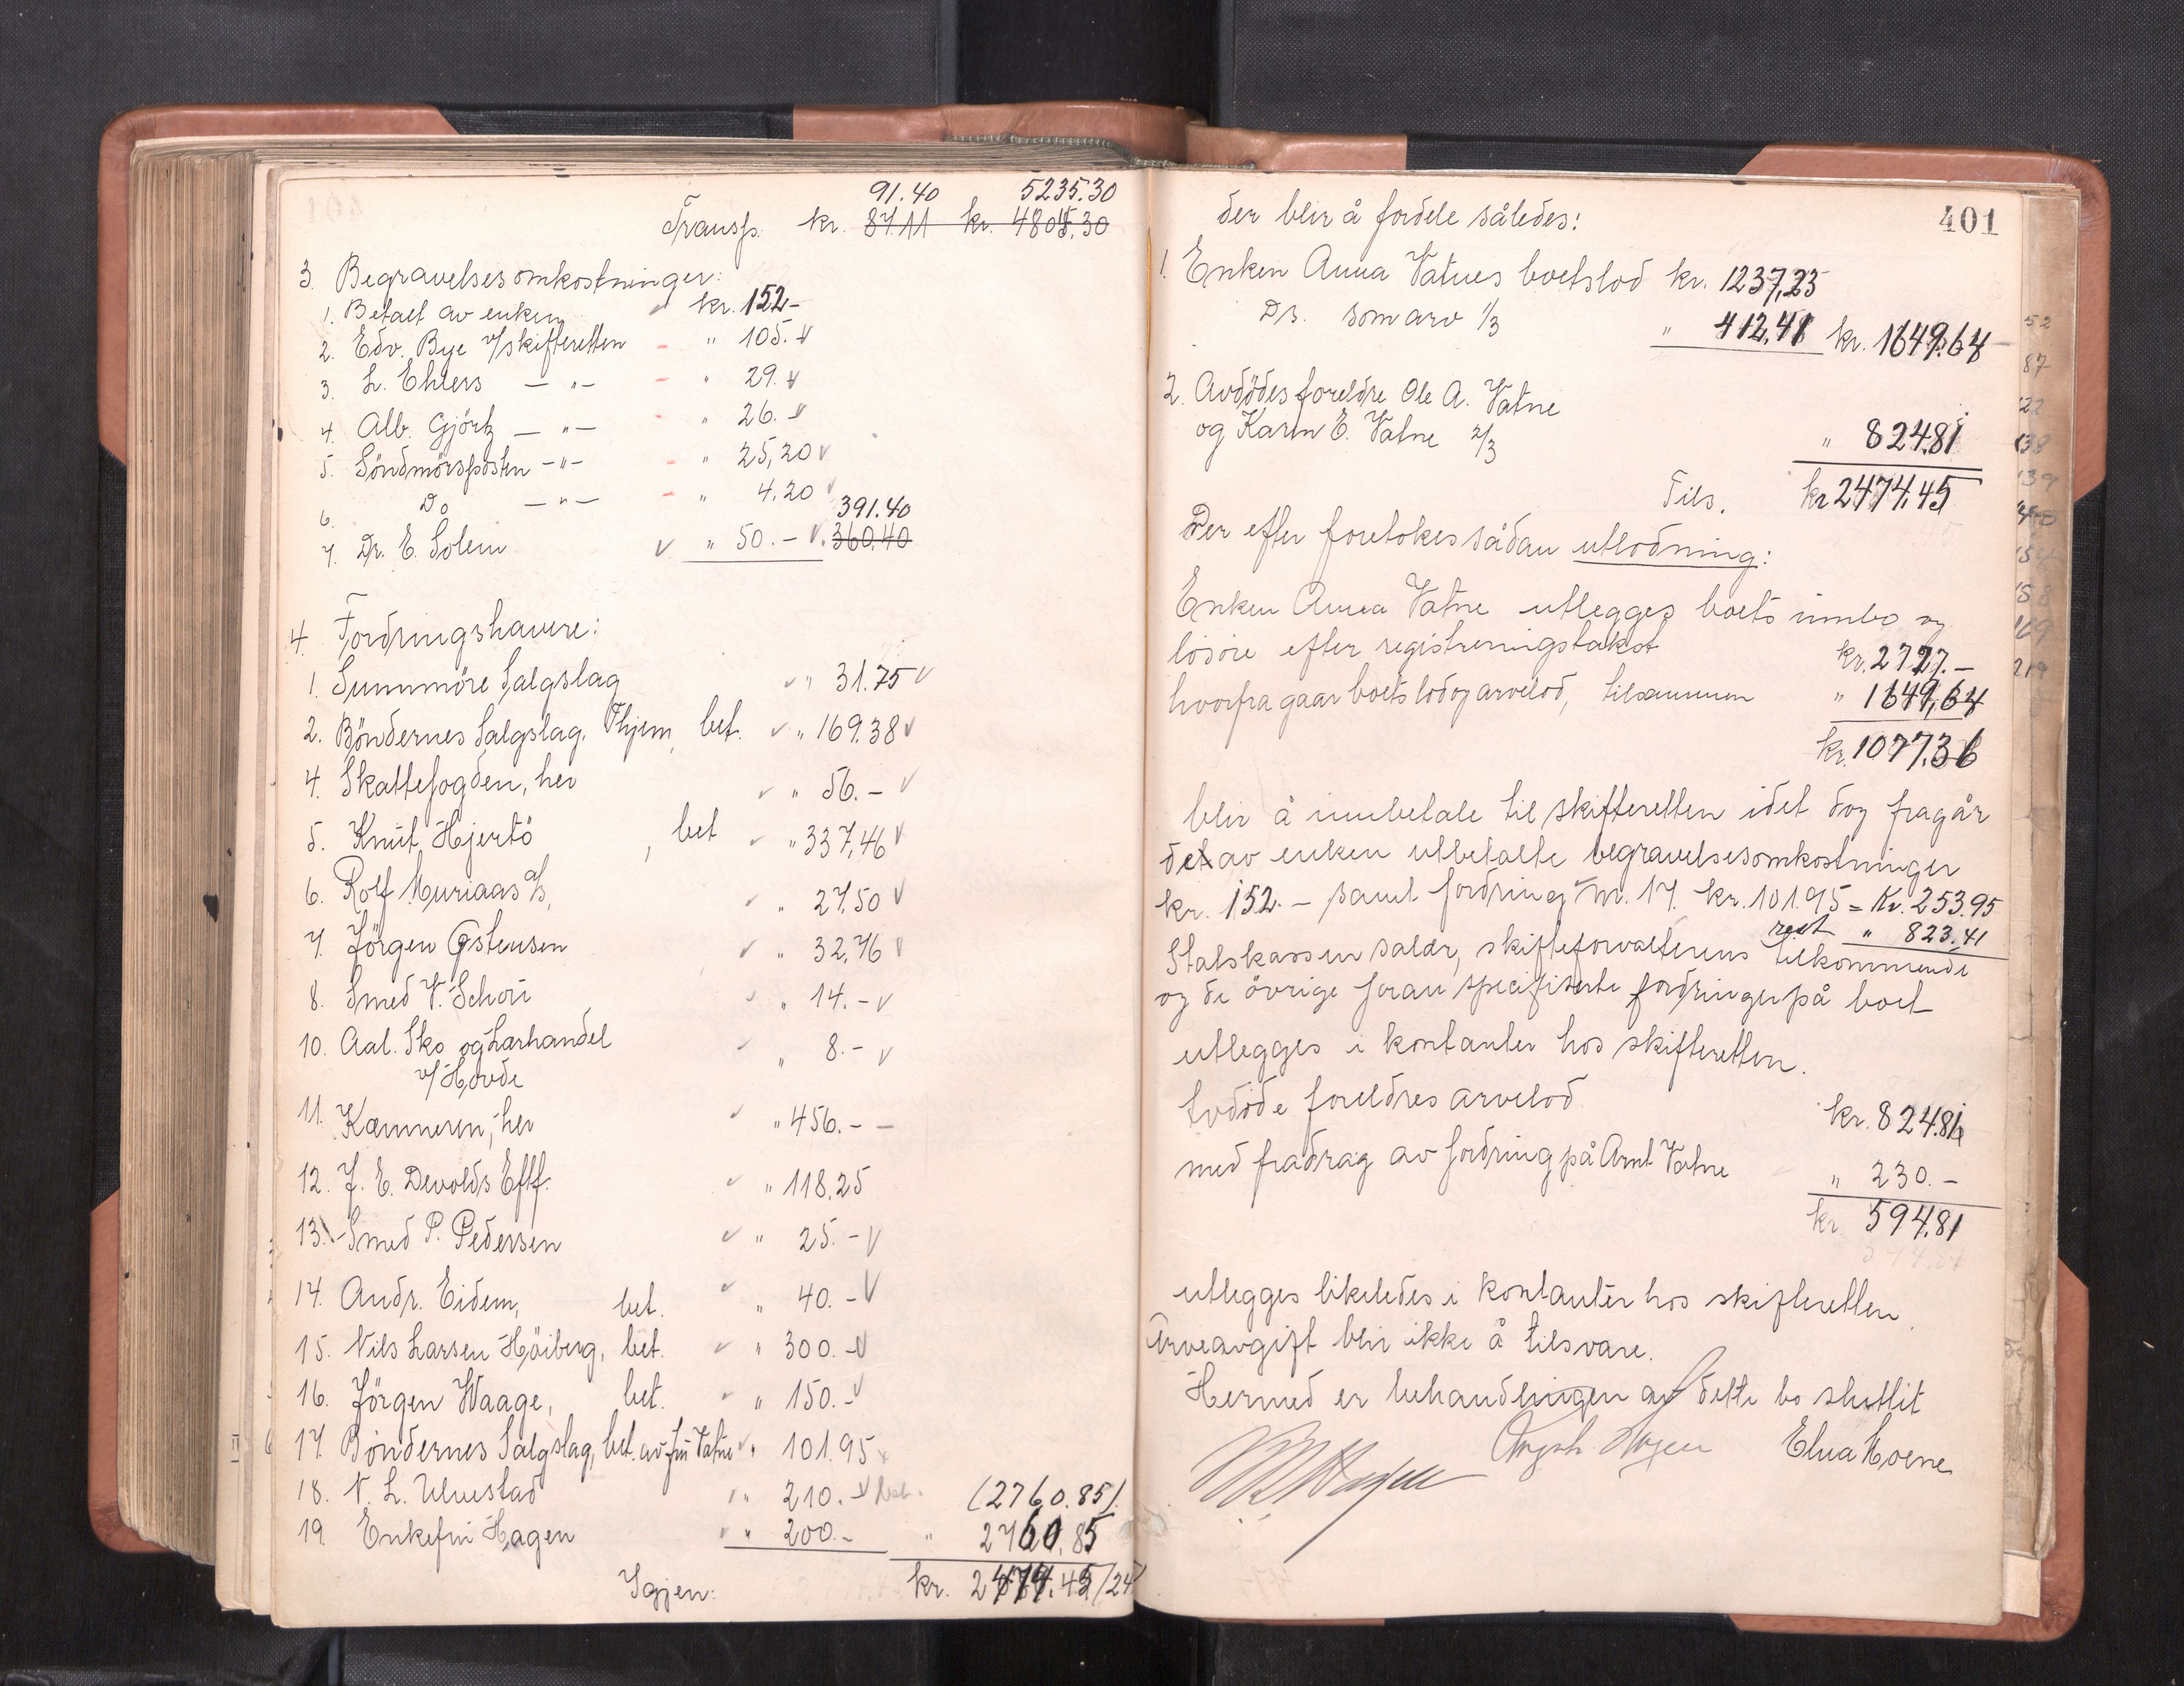 91.40 5235.30
Transp. kr. 87.11 kr. 4805.30
3. Begravelsesomkostninger:
1. Betalt av enken kr. 152-
2. Edv. Bye v/skifteretten - " 105.-
3. L. Ehlers - " - - " 29.-
4. Alb. Gjörtz - " - - " 26.-
5. Söndmörsposten - " - - " 25,20
6. Do - " - - " 4.20
391.40
7. Dr. E. Solem " 50.- 360.40
4. Fordringshavere:
1. Sunnmöre Salgslag " 31.75
2. Böndernes Salgslag, Thjem, bet. " 169.38
4. Skattefogden, her " 56.-
5. Knut Hjertö, bet " 337,46
6. Rolf Muriaas A/S, " 27,50
7. Jörgen Östensen " 32,76
8. Smed V. Schou " 14.-
10. Aal. Sko og Lærhandel " 8.-
v/Hovde
11. Kæmneren, her " 456.--
12. J. E. Devolds Eftf. " 118,25
13. Smed P. Pedersen " 25.-
14. Andr. Eidem, bet. " 40.-
15. Nils Larsen Höiberg, bet. " 300.-
16. Jörgen Waage, bet. " 150.-
17. Böndernes Salgslag, bet. av fru Vatne " 101.95
18. N. L. Ulvestad " 210.- bet. (2760.85)
19. Enkefru Hagen " 200.- " 2760.85
Igjen: kr. 2474.45
401
der blir å fordele således:
1. Enken Anna Vatnes boetslod kr. 1237,23
Ds. som arv 1/3 " 412,41 kr. 1649.64
2. Avdödes foreldre Ole A. Vatne
og Karen E. Vatne 2/3 " 824.81
Tils. kr 2474.45
Der efter foretokes sådan utlodning:
Enken Anna Vatne utlegges boets innbo og
lösöre efter registreringstakst kr. 2727.-
hvorfra gaar boetslod og arvelod, tilsammen " 1649,64
kr. 1077.36
blir å innbetale til skifteretten idet dog fragår
det av enken utbetalte begravelsesomkostninger
kr. 152.- samt fordring nr. 17. kr. 101.95 = Kr. 253.95
rest " 823.41
Statskassen saldr, skifteforvalterens tilkommende
og de övrige foran specifiserte fordringer på boet
utlegges i kontanter hos skifteretten.
Avdöde foreldres arvelod kr. 824.81
med fradrag av fordring på Arnt Vatne " 230.-
kr. 594.81
utlegges likeledes i kontanter hos skifteretten.
Arveavgift blir ikke å tilsvare.
Hermed er behandlingen av dette bo sluttet
Elna Moene